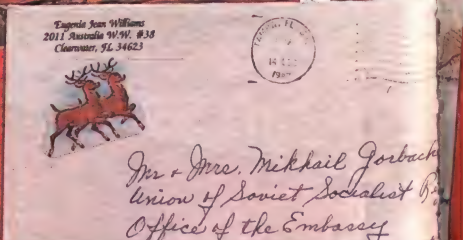 Eugenia Jean Williams
2011 Australia W.W. #38
Clearwater, FL 34623
TAMPA, FL
Mr + Mrs. Mikhail Gorbach
Union of Soviet Socialist
Office of the Embassy